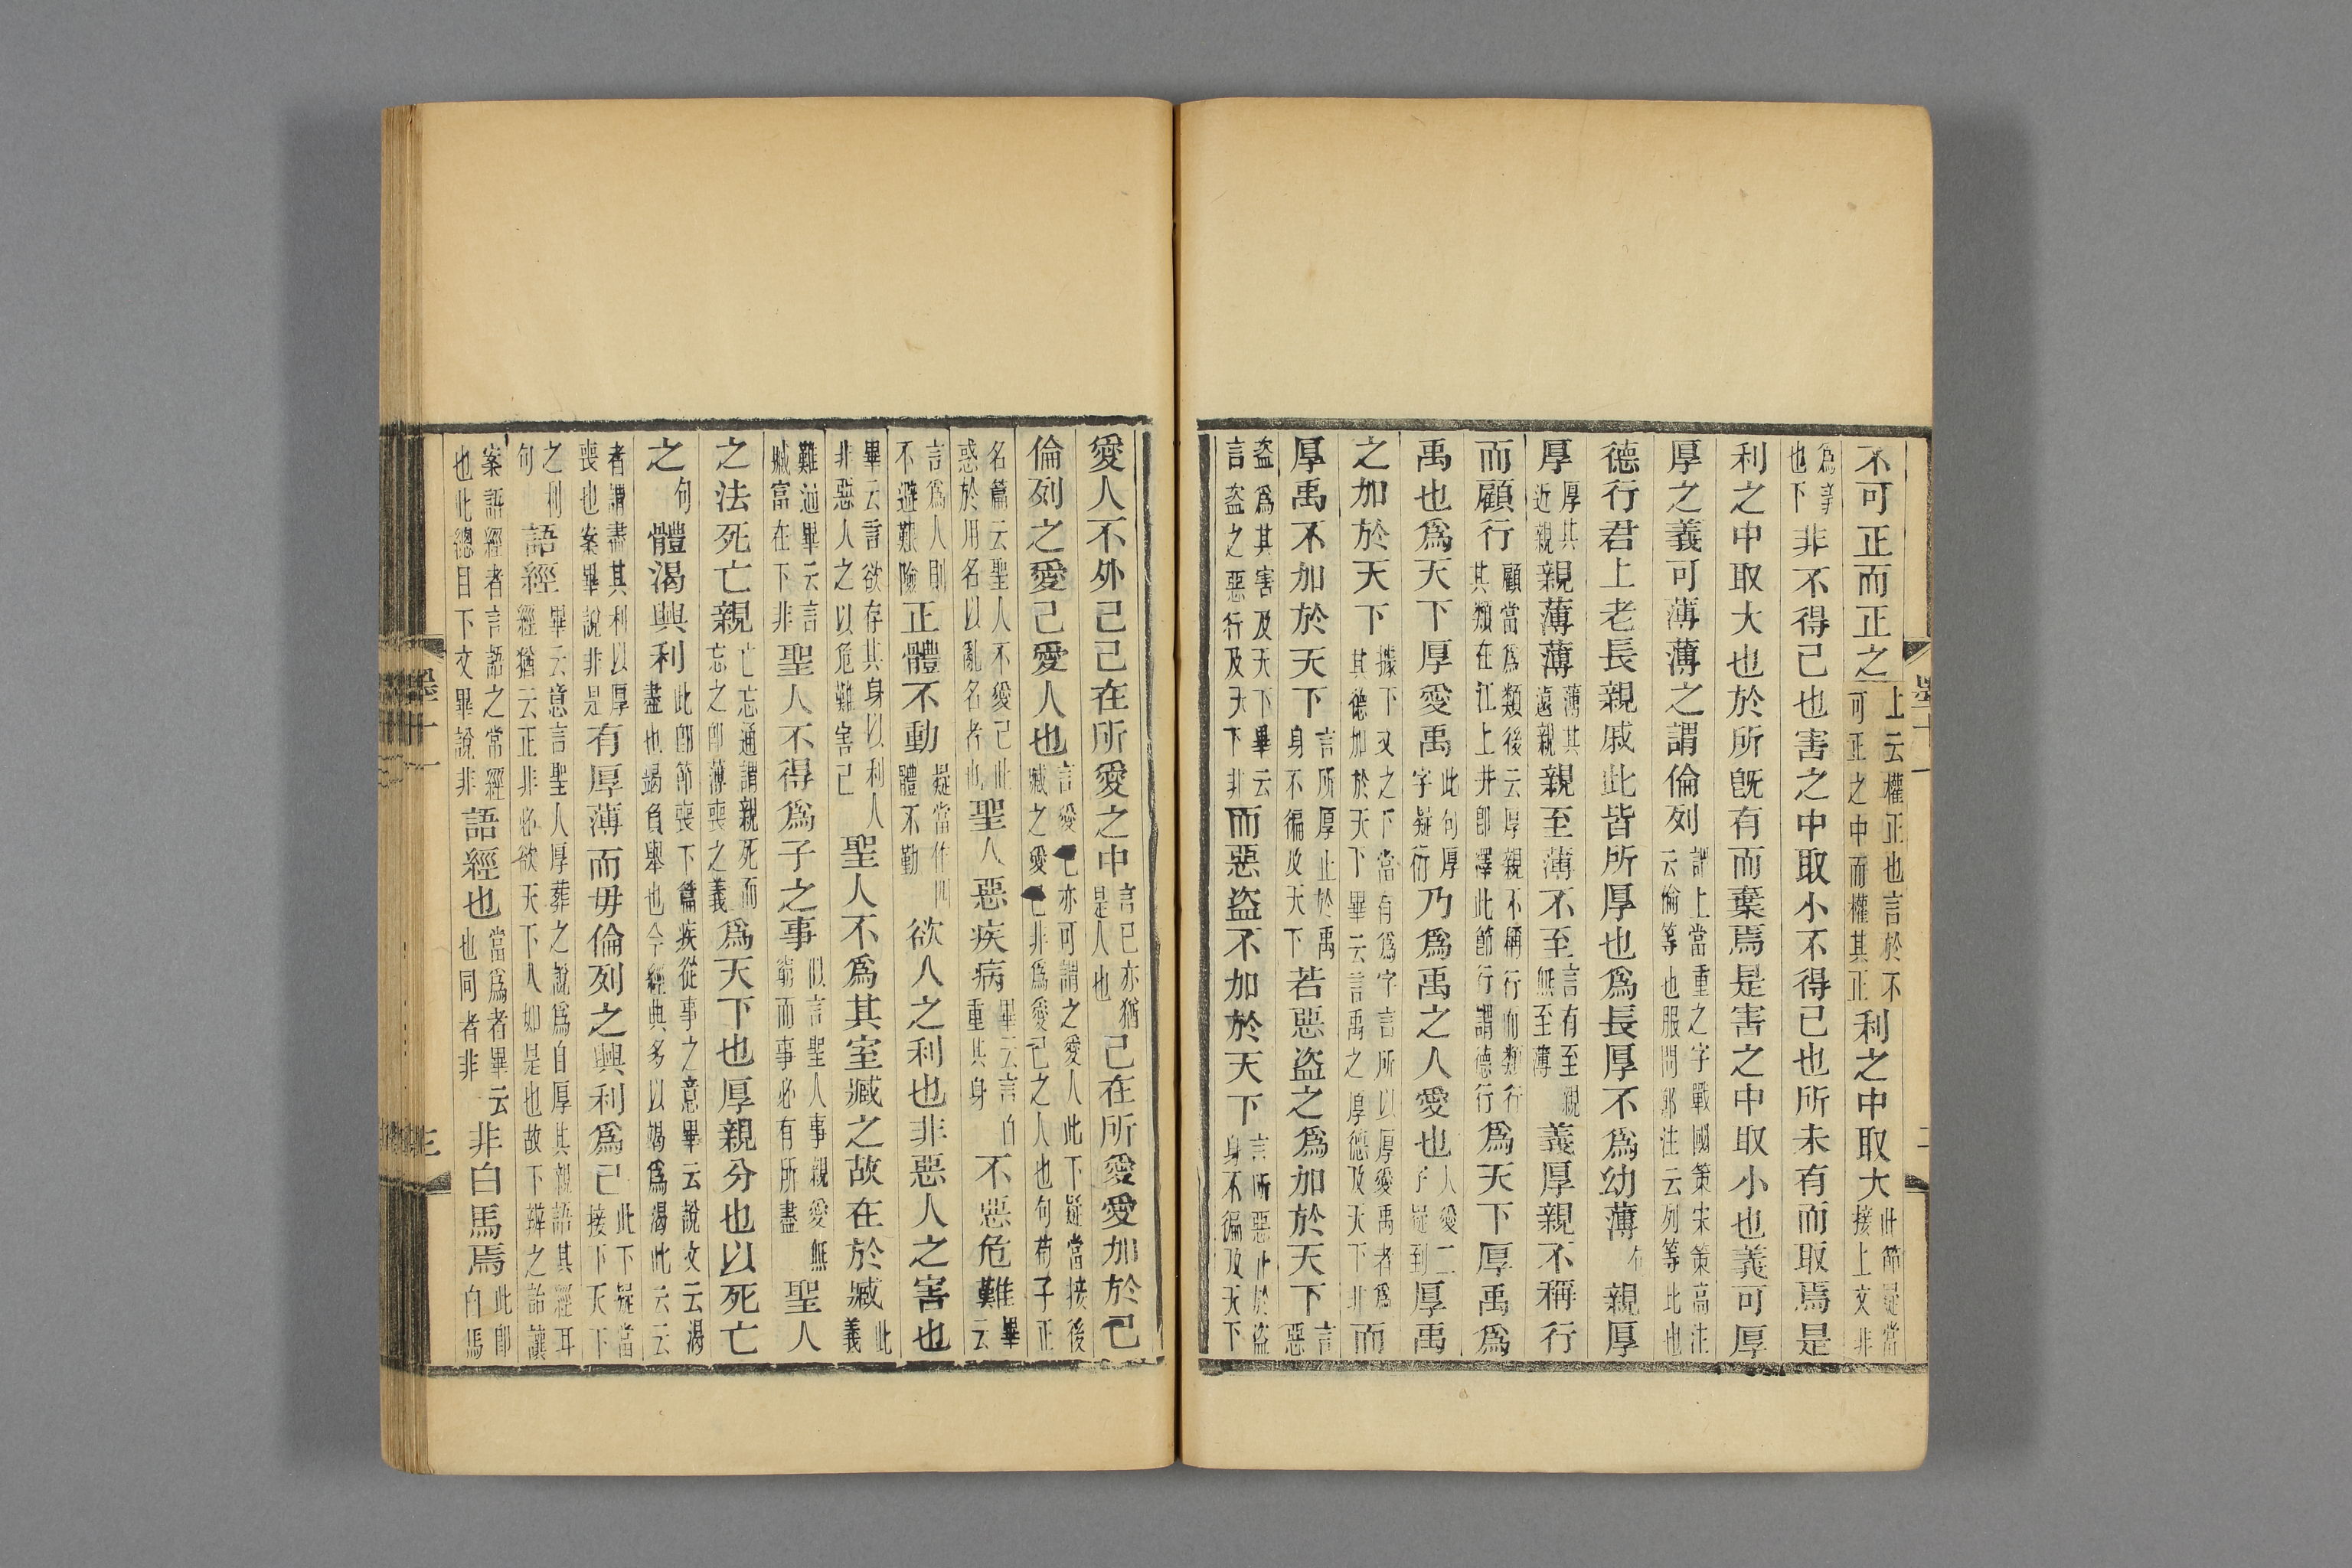 不可正而正之上云權正也言於不可正之中而權其正利之中取大此節疑當接上文非
爲事也下非不得已也害之中取小不得已也所未有而取焉是
利之中取大也於所旣有而棄焉是害之中取小也義可厚
厚之義可薄薄之謂倫列謂上當重之字戰國策宋策高注云倫等也服問鄭注云列等比也
德行君上老長親戚此皆所厚也爲長厚不爲幼薄句親厚
厚厚其近親親薄薄薄其遠親親至薄不至言有至親無至薄義厚親不稱行
而顧行顧當爲類後云厚親不稱行而類行其類在江上井卽釋此節行謂德行爲天下厚禹爲
禹也爲天下厚愛禹此句厚字疑衍乃爲禹之人愛也人愛二字疑到厚禹
之加於天下據下文之下當有爲字言所以厚愛禹者爲其德加於天下畢云言禹之厚德及天下非而
厚禹不加於天下言所厚止於禹身不徧及天下若惡盜之爲加於天下言惡
盜爲其害及天下畢云言盜之惡行及天下非而惡盜不加於天下言所惡止於盜身不徧及天下
愛人不外己己在所愛之中言己亦猶是人也己在所愛愛加於己
倫列之愛己愛人也言愛己亦可謂之愛人此下疑當接後臧之愛己非爲愛己之人也句荀子正
名篇云聖人不愛己此惑於用名以亂名者也聖人惡疾病畢云言自重其身不惡危難畢云
言爲人則不避艱險正體不動疑當作四體不勤欲人之利也非惡人之害也
畢云言欲存其身以利人非惡人之以危難害己聖人不爲其室臧之故在於臧此義
難通畢云言臧富在下非聖人不得爲子之事似言聖人事親愛無窮而事必有所盡聖人
之法死亡親亡忘通謂親死而忘之卽薄喪之義爲天下也厚親分也以死亡
之句體渴興利此卽節喪下篇疾從事之意畢云說文云渴盡也竭負舉也今經典多以竭爲渴此云云
者謂盡其利以厚喪也案畢說非是有厚薄而毋倫列之興利爲己此下疑當接下天下
之利句語經畢云意言聖人厚葬之說爲自厚其親語其經耳經猶云正非必欲天下人如是也故下辯之詒讓
案語經者言語之常經也此總目下文畢說非語經也當爲者畢云也同者非非白馬焉此卽白馬
墨十一